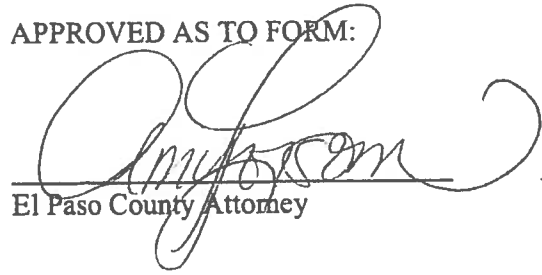 APPROVED AS TO FORM:
El Paso County Attorney